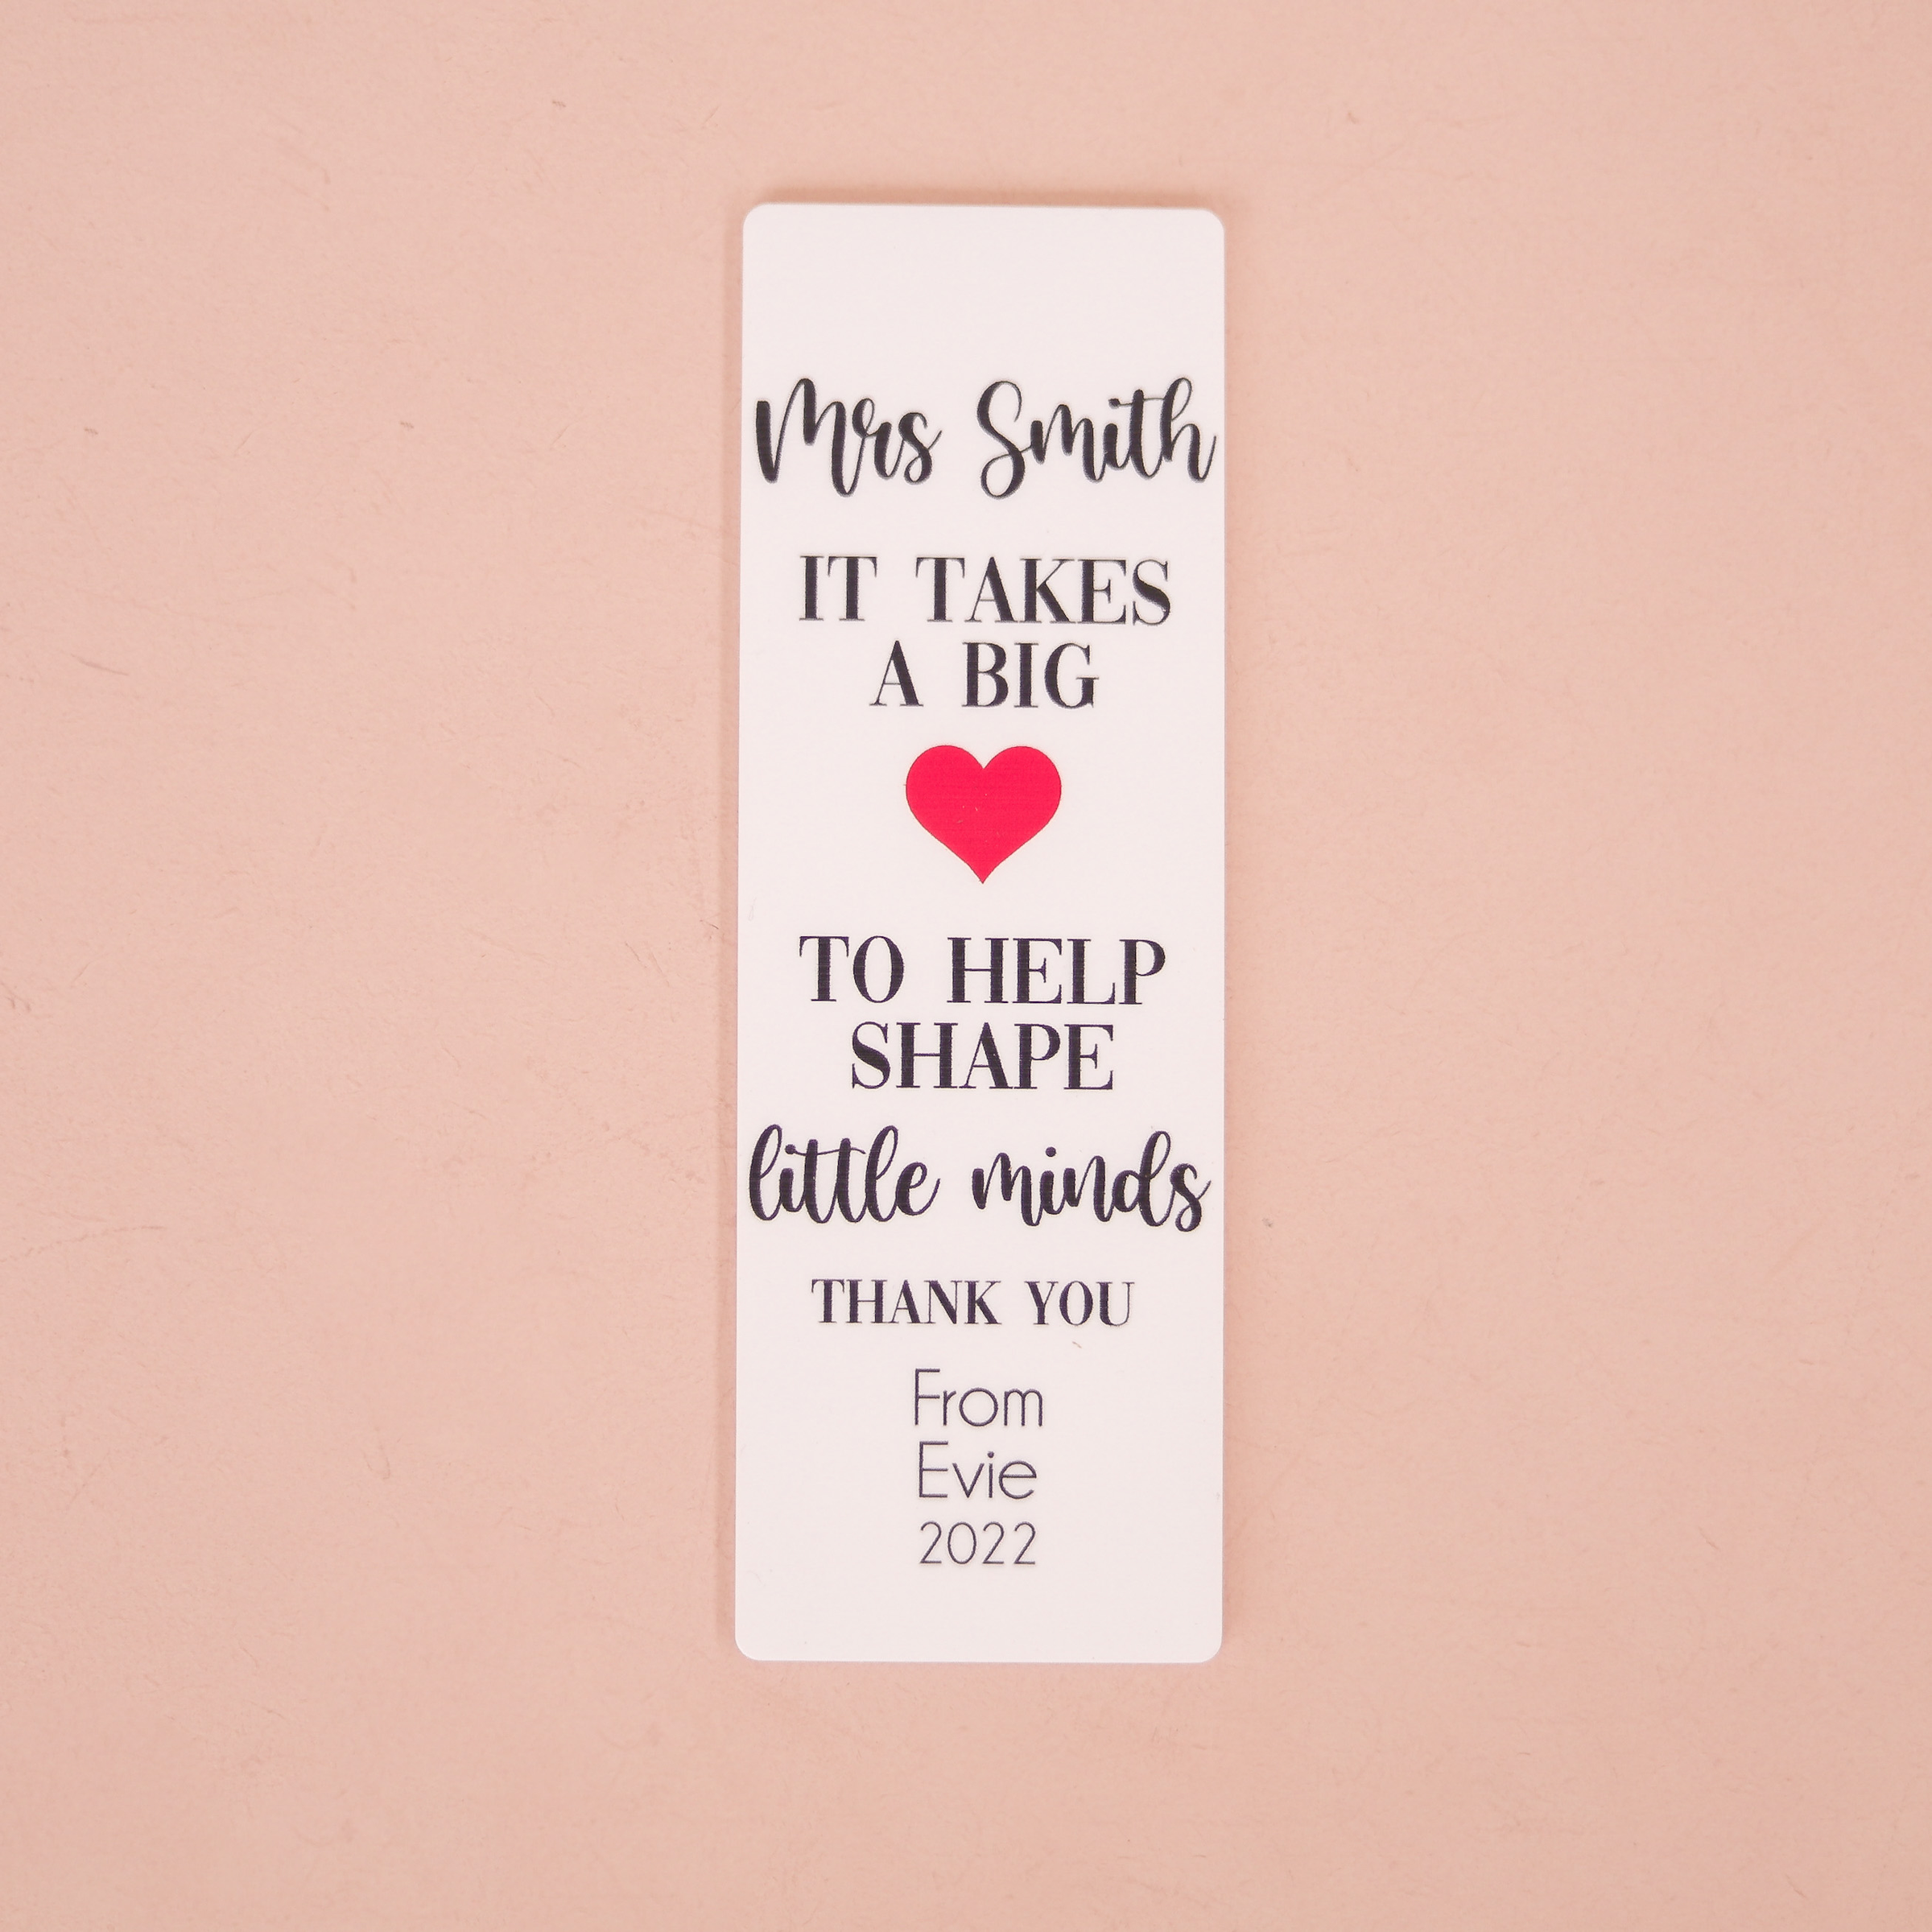 Mrs Smith
IT TAKES
A BIG
TO HELP
SHAPE
little minds
THANK YOU
From
Evie
2022